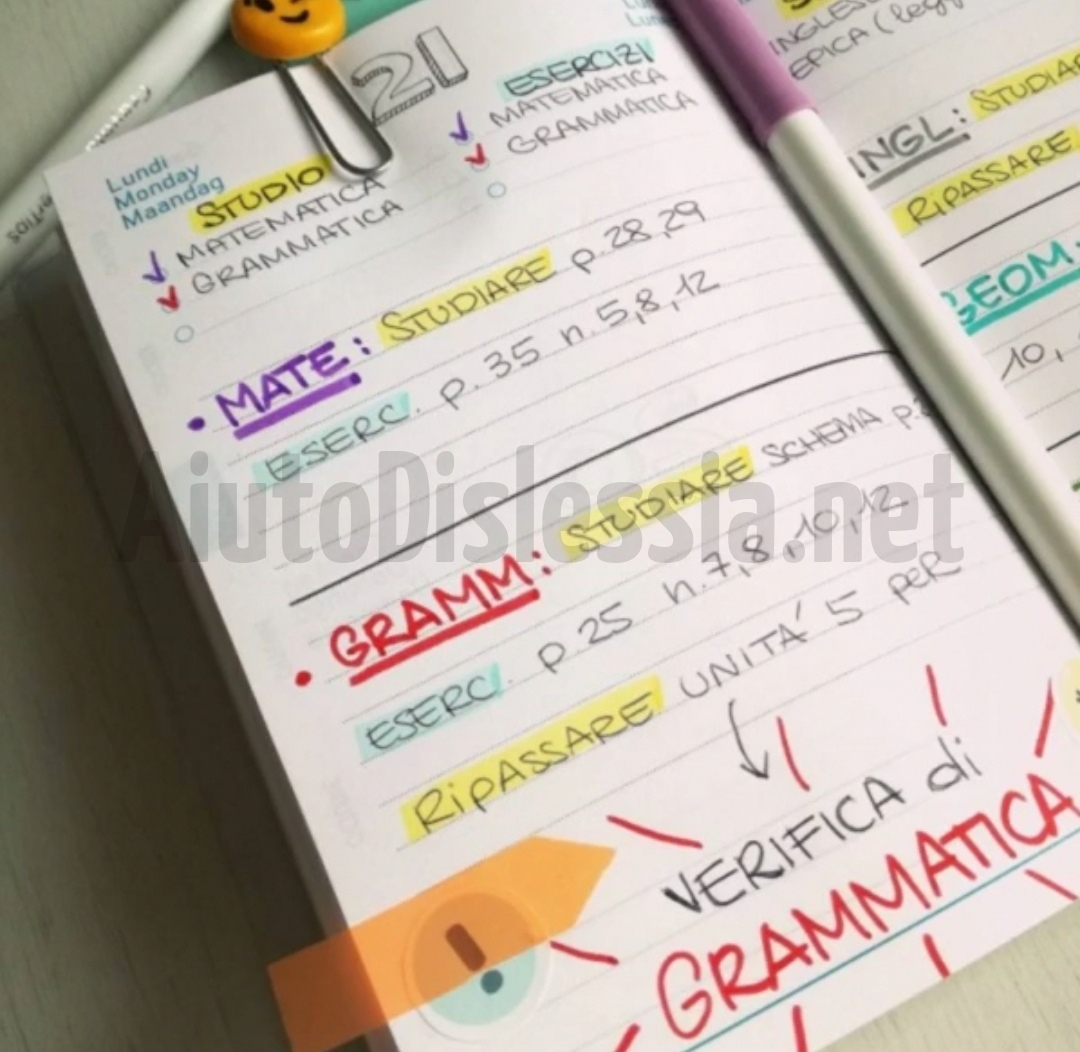 21
Lundi
Monday
Maandag
STUDIO
MATEMATICA
GRAMMATICA
ESERCIZI
MATEMATICA
GRAMMATICA
MATE: STUDIARE p. 28, 29
ESERC. p. 35 n. 5, 8, 12
GRAMM: STUDIARE SCHEMA p.
ESERC. p. 25 n. 7, 8, 10, 12
RiPASSARE UNITÁ 5 PER
VERIFICA di
GRAMMATICA
EPICA
INGL: STUDIARE
RiPASSARE
GEOM:
10,
AiutoDislessia.net